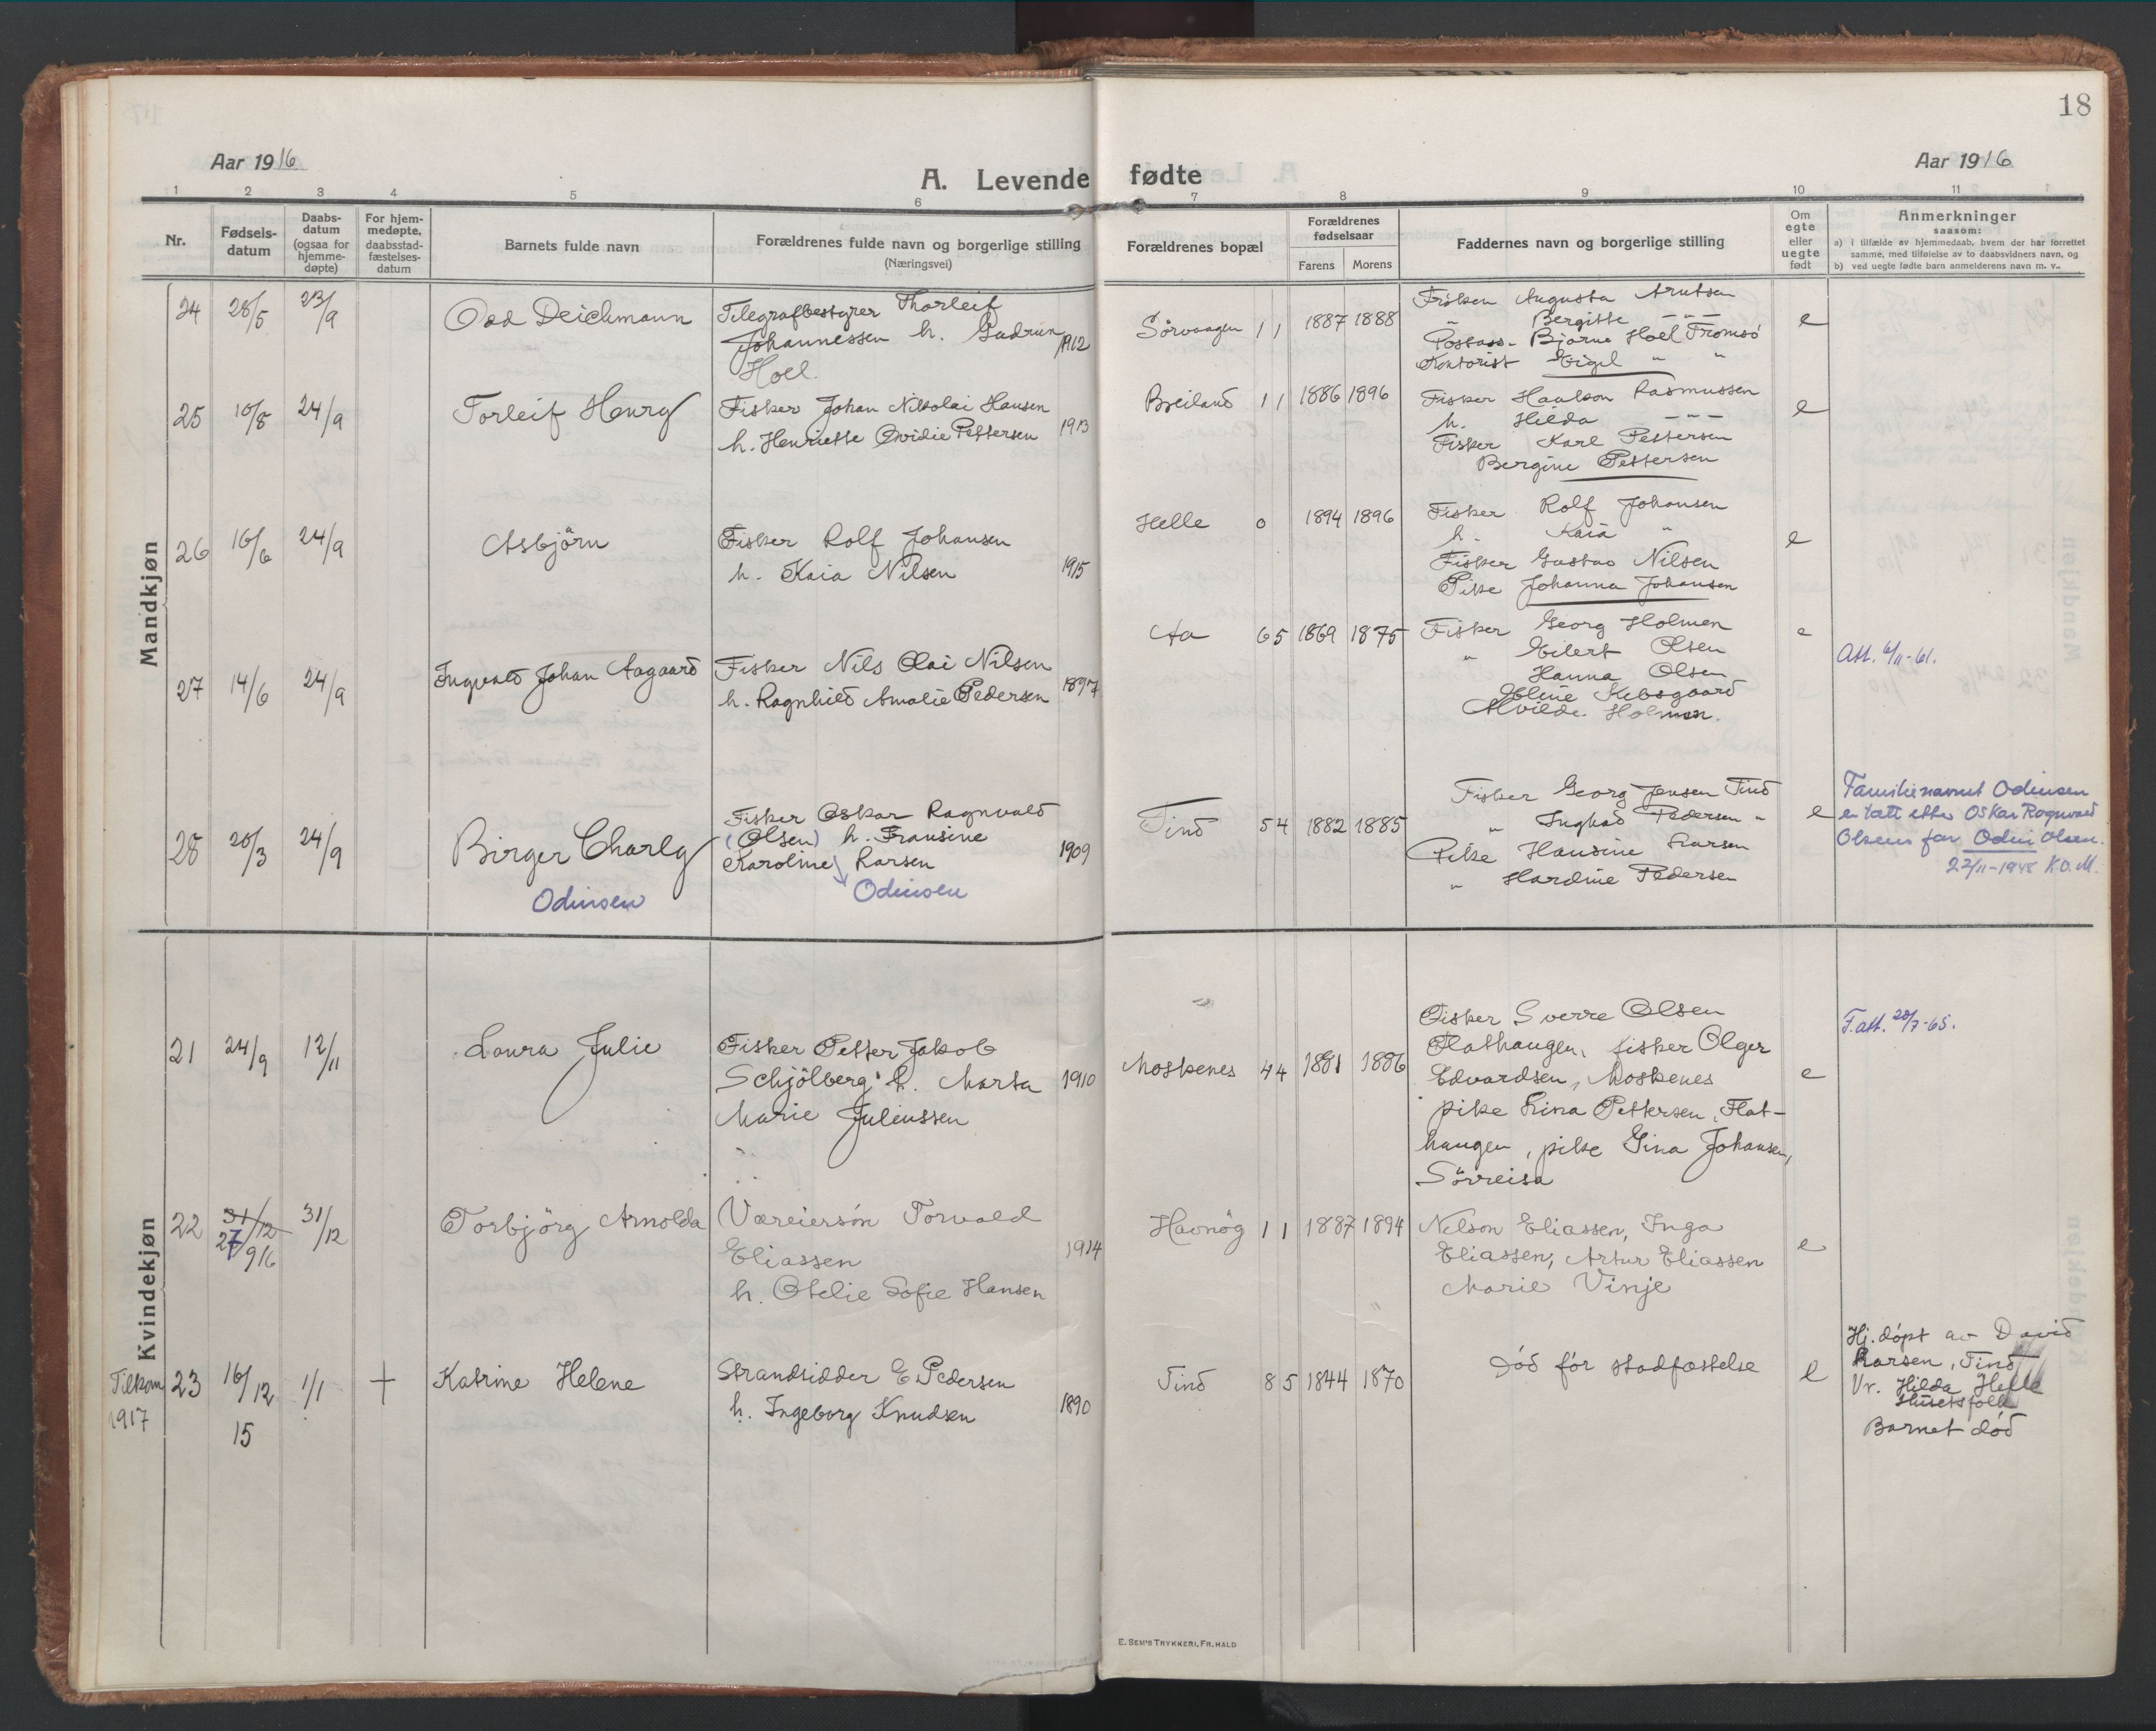 18
Aar 1916
Aar 1916
A. Levende fødte
1 2 3 4 5 6 7 8 9 10 11
Nr.
Fødsels-
datum
Daabs-
datum
(ogsaa for
hjemme-
døpte)
For hjem-
medøpte,
daabsstad-
fæstelses-
datum
Barnets fulde navn
Forældrenes fulde navn og borgerlige stilling
(Næringsvei)
Forældrenes bopæl
Forældrenes
fødselsaar
Farens Morens
Faddernes navn og borgerlige stilling
Om
egte
eller
uegte
født
Anmerkninger
saasom:
a) i tilfælde av hjemmedaab, hvem der har forrettet
samme, med tilføielse av to daabsvidners navn, og
b) ved uegte fødte barn anmelderens navn m. v..
Mandkjøn
24 28/5 23/9 Odd Deichmann
Telegrafbestyrer Thorleif
Johannessen h. Gudrun 1912
Hoel.
Sörvaagen 1 1 1887 1888
Fröken Augusta Arntsen
" Bergitte — — —
Postass. Bjarne Hoel Tromsö
Kontorist Eigil " "
e
25 10/8 24/9 Torleif Henry
Fisker Johan Nikolai Hansen
h. Henriette Ovidie Pettersen 1913
Breiland 1 1 1886 1896
Fisker Haakon Rasmussen
h. Hilda — — —
Fisker Karl Pettersen
Bergine Pettersen
e
26 16/6 24/9 Asbjörn
Fisker Rolf Johansen
h. Kaia Nilsen 1915
Helle 0 1894 1896
Fisker Rolf Johansen
h. Kaia "
Fisker Gustav Nilsen
Pike Johanna Johansen
e
27 14/6 24/9 Ingvald Johan Aagaard
Fisker Nils Olai Nilsen
h. Ragnhild Amalie Pedersen 1897
Aa 6 5 1869 1875
Fisker Georg Holmen
" Eilert Olsen
Hanna Olsen
Eline Kebsgaard
Alvilde Holmen.
e
Att. 6/11-61.
28 20/3 24/9 Birger Charly
Odinsen
Fisker Oskar Ragnvald
(Olsen) h. Fransine
Karoline Larsen 1909
Odinsen
Tind 5 4 1882 1885
Fisker Georg Jensen Tind
" Ingvad Pedersen "
Pike Hansine Larsen
" Hardine Pedersen
e
Familienavnet Odinsen
er tatt etter Oskar Ragnvald
Olsens far Odin Olsen.
22/11-1948 K.O.M.
Kvindekjøn
21 24/9 12/11 Laura Julie
Fisker Petter Jakob
Schjölberg h. Marta 1910
Marie Juliussen
Moskenes 4 4 1881 1886
Fisker Sverre Olsen
Flathaugen, fisker Olger
Edvardsen, Moskenes
pike Lina Pettersen, Flat-
haugen, pike Gina Johansen,
Sörreisa
e
F. att. 20/7-65.
22 31/12 27/9 16 31/12 Torbjörg Arnolda
Væreiersön Torvald
Eliassen 1914
h. Otelie Sofie Hansen
Havnög 1 1 1887 1894
Nelson Eliassen, Inga
Eliassen, Artur Eliassen
Marie Vinje
e
Tilkom
1917
23 16/12 15 1/1 + Katrine Helene
Strandsidder E Pedersen
h. Ingeborg Knudsen 1890
Tind 8 5 1844 1870
Död för stadfæstelse
e
Hj. döpt av David
Larsen, Tind
Vr. Hilda Helle
Husetsfolk
Barnet död
E. SEM'S TRYKKERI, FR. HALD